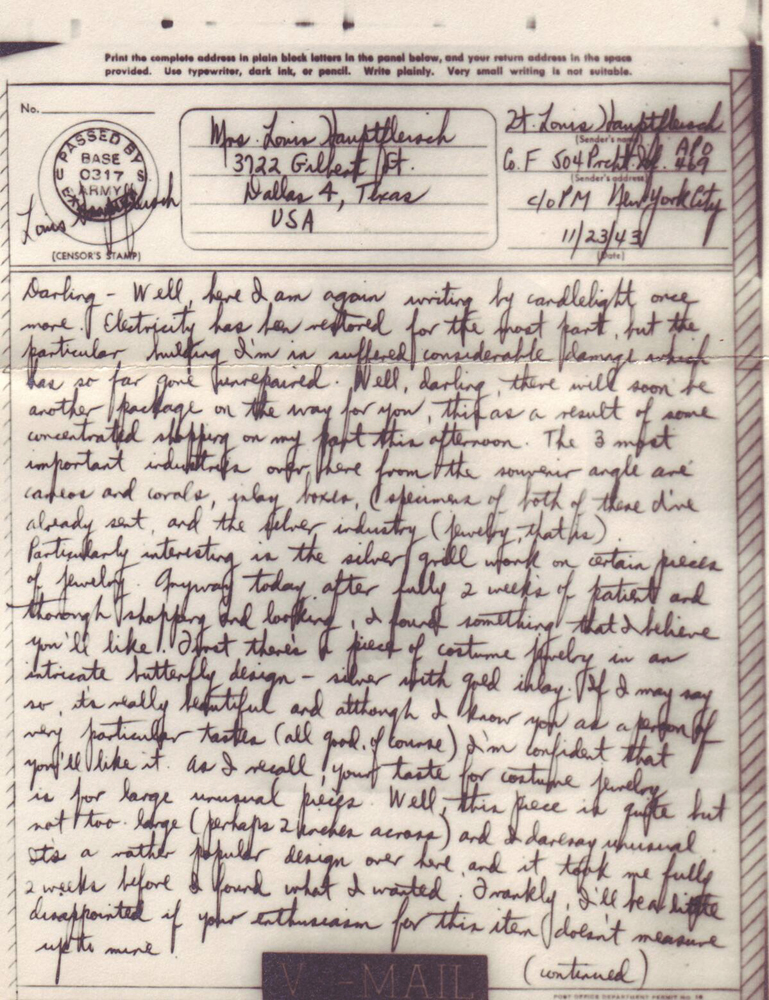 Print the complete address in plain block letters in the panel below, and your return address in the space
provided. Use typewriter, dark ink, or pencil. Write plainly. Very small writing is not suitable.
No.
PASSED BY
BASE
0317
ARMY
Louis Hauptfleisch
(CENSOR'S STAMP)
Mrs. Louis Hauptfleisch
3722 Gilbert St.
Dallas 4, Texas
USA
Lt. Louis Hauptfleisch
(Sender's name)
APO
Co. F 504 Prcht. Inf. 469
(Sender's address)
c/o PM New York City
11/23/43
(Date)
Darling - Well, here I am again writing by candlelight once
more. Electricity has been restored for the most part, but the
particular building I'm in suffered considerable damage which
has so far gone unrepaired. Well, darling, there will soon be
another package on the way for you, this as a result of some
concentrated shopping on my part this afternoon. The 3 most
important industries over here from the souvenir angle are
cameos and corals, inlay boxes, (specimens of both of these I've
already sent, and the silver industry (jewelry, that is).
Particularly interesting is the silver grill work on certain pieces
of jewelry. Anyway today after fully 2 weeks of patient and
thorough shopping and looking, I found something that I believe
you'll like! First there's a piece of costume jewelry in an
intricate butterfly design - silver with gold inlay. If I may say
so, it's really beautiful and although I know you as a person of
very particular tastes (all good, of course) I'm confident that
you'll like it. As I recall, your taste for costume jewelry
is for large unusual pieces. Well, this piece is quite but
not too large (perhaps 2 inches across) and I daresay unusual.
It's a rather popular design over here, and it took me fully
2 weeks before I found what I wanted. Frankly, I'll be a little
disappointed if your enthusiasm for this item doesn't measure
up to mine.
(continued)
V-MAIL
POST OFFICE DEPARTMENT PERMIT NO. 18